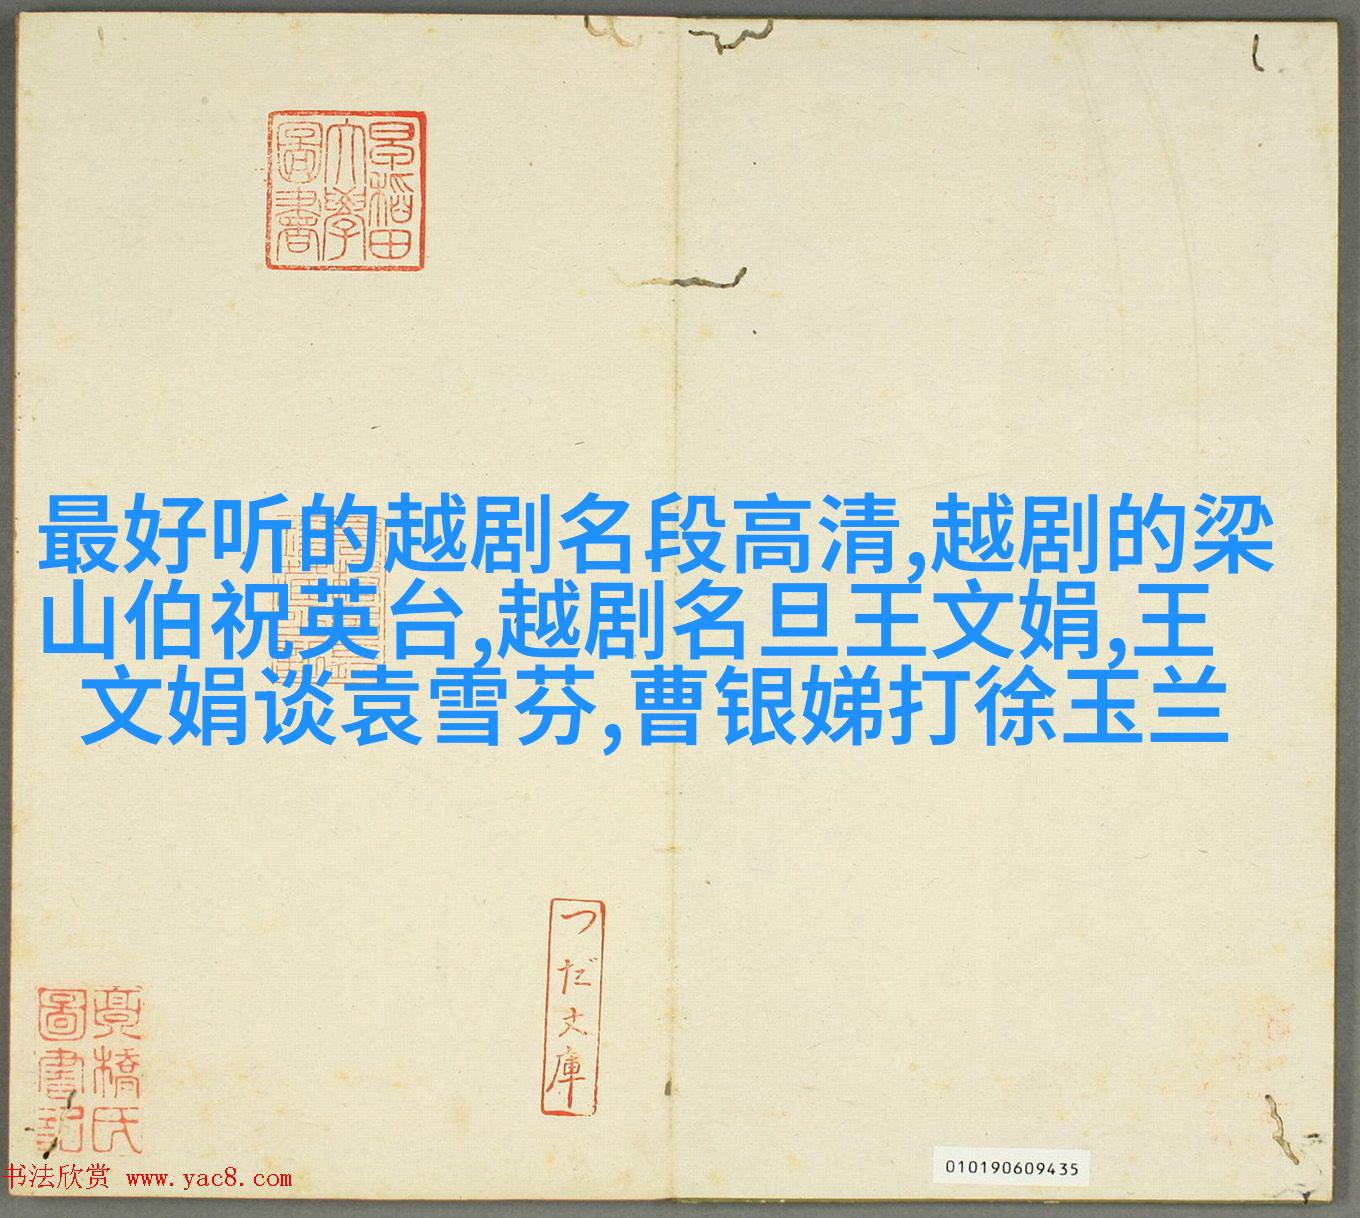 早稻田
大學
圖書
最好听的越剧名段高清,越剧的梁
山伯祝英台,越剧名旦王文娟,王
文娟谈袁雪芬,曹银娣打徐玉兰
つだ文庫
橋氏
圖書記
书法欣赏 www.yac8.com
010190609435